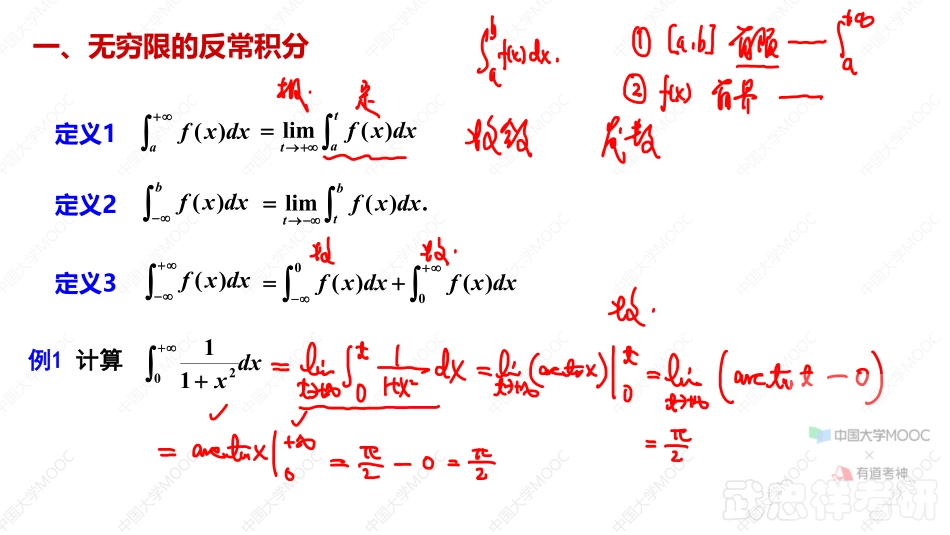 一、无穷限的反常积分
∫_a^b f(x)dx.
① [a,b] 有限 — ∫_a^{+∞}
② f(x) 有界 —
极. 定
定义1 ∫_a^{+∞} f(x)dx = lim_{t→+∞} ∫_a^t f(x)dx 收敛 发散
定义2 ∫_{-∞}^b f(x)dx = lim_{t→-∞} ∫_t^b f(x)dx.
收 收.
定义3 ∫_{-∞}^{+∞} f(x)dx = ∫_{-∞}^0 f(x)dx + ∫_0^{+∞} f(x)dx
收.
例1 计算 ∫_0^{+∞} 1/(1+x²) dx = lim_{t→+∞} ∫_0^t 1/(1+x²) dx = lim_{t→+∞} (arctan x)|_0^t = lim_{t→+∞} (arctan t − 0)
= arctan x |_0^{+∞} = π/2 − 0 = π/2
= π/2
中国大学MOOC
×
有道考神
武忠祥考研